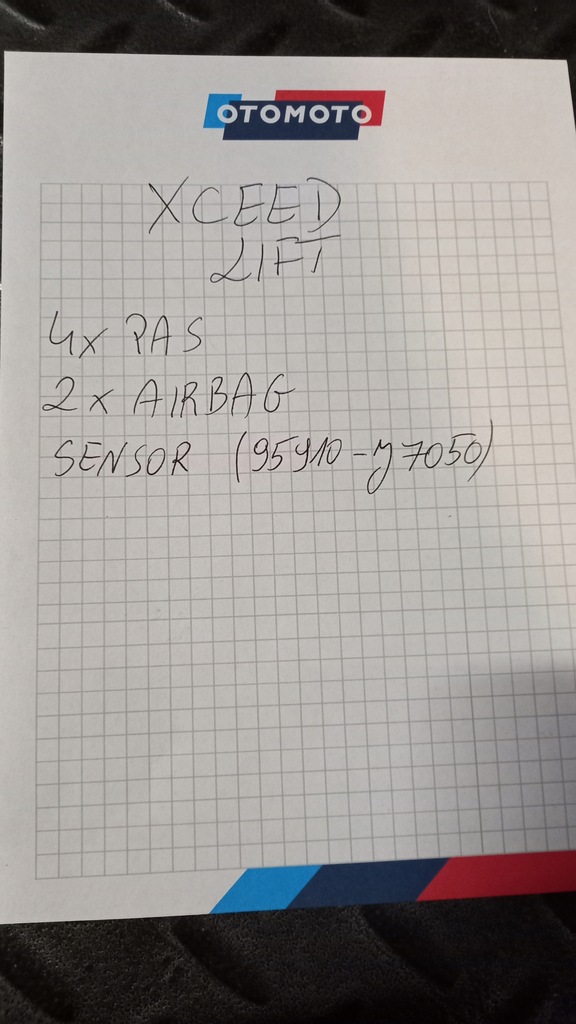 OTOMOTO
XCEED
LIFT
4x PAS
2x AIRBAG
SENSOR (95910-y7050)